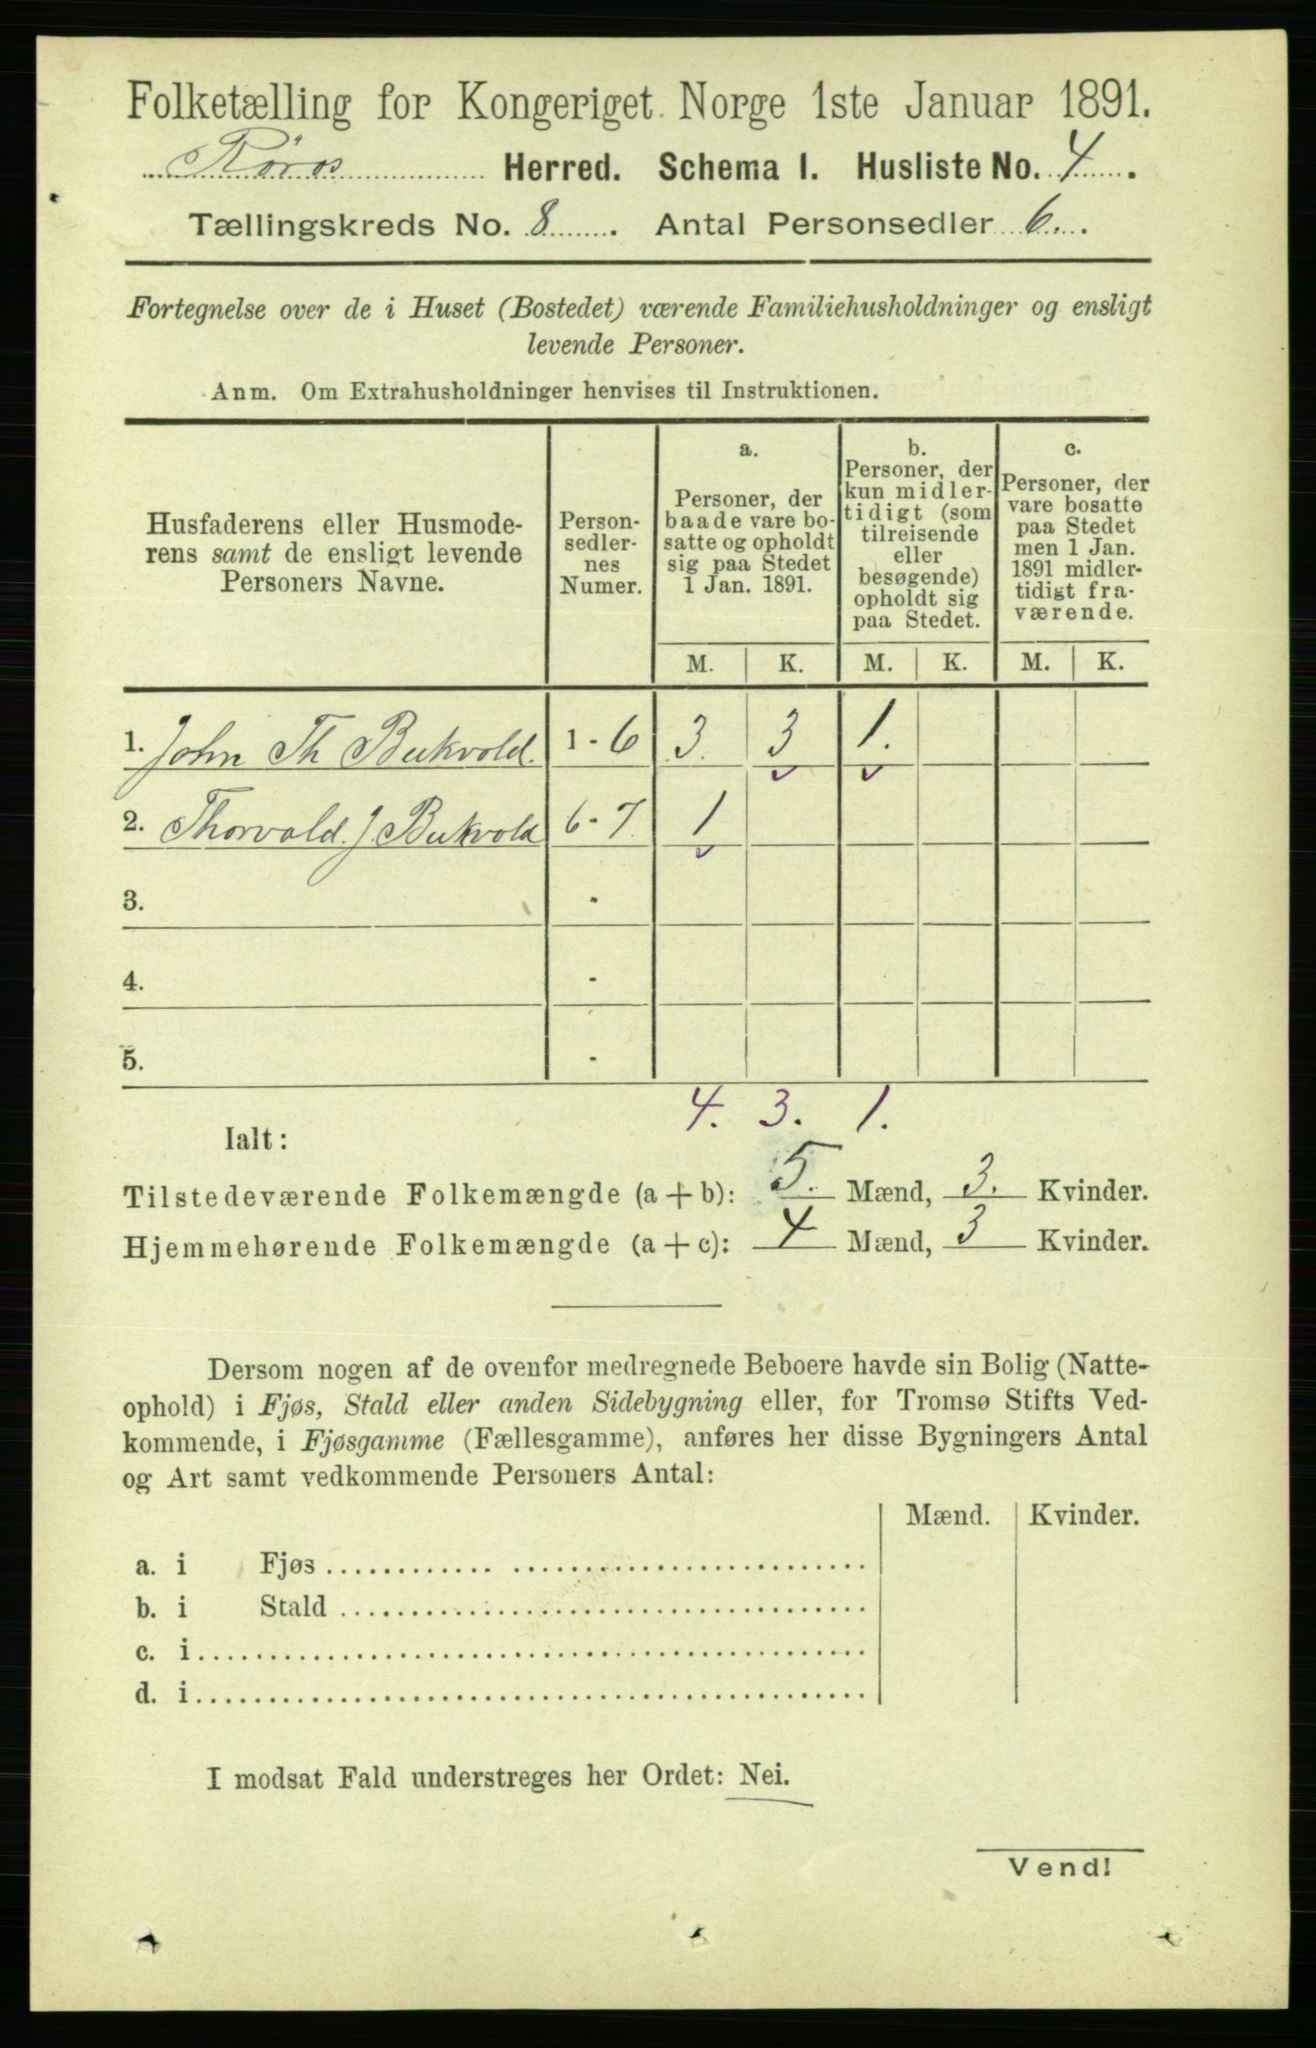 Folketælling for Kongeriget Norge 1ste Januar 1891.
Röros Herred. Schema 1. Husliste No. 4.
Tællingskreds No. 8. Antal Personsedler 6.
Fortegnelse over de i Huset (Bostedet) værende Familiehusholdninger og ensligt
levende Personer.
Anm. Om Extrahusholdninger henvises til Instruktionen.
Husfaderens eller Husmode-
rens samt de ensligt levende
Personers Navne.
Person-
sedler-
nes
Numer.
a.
Personer, der
baade vare bo-
satte og opholdt
sig paa Stedet
1 Jan. 1891.
b.
Personer, der
kun midler-
tidigt (som
tilreisende
eller
besøgende)
opholdt sig
paa Stedet.
c.
Personer, der
vare bosatte
paa Stedet
men 1 Jan.
1891 midler-
tidigt fra-
værende.
M. K. M. K. M. K.
1. John Th Bukvold. 1 - 6 3. 3 1.
2. Thorvald. J. Bukvold 6 - 7. 1
3. -
4. -
5. -
4. 3. 1.
Ialt:
Tilstedeværende Folkemængde (a + b): 5. Mænd, 3. Kvinder.
Hjemmehørende Folkemængde (a + c): 4 Mænd, 3 Kvinder.
Dersom nogen af de ovenfor medregnede Beboere havde sin Bolig (Natte-
ophold) i Fjøs, Stald eller anden Sidebygning eller, for Tromsø Stifts Ved-
kommende, i Fjøsgamme (Fællesgamme), anføres her disse Bygningers Antal
og Art samt vedkommende Personers Antal:
Mænd. Kvinder.
a. i Fjøs
b. i Stald
c. i
d. i
I modsat Fald understreges her Ordet: Nei.
Vend!